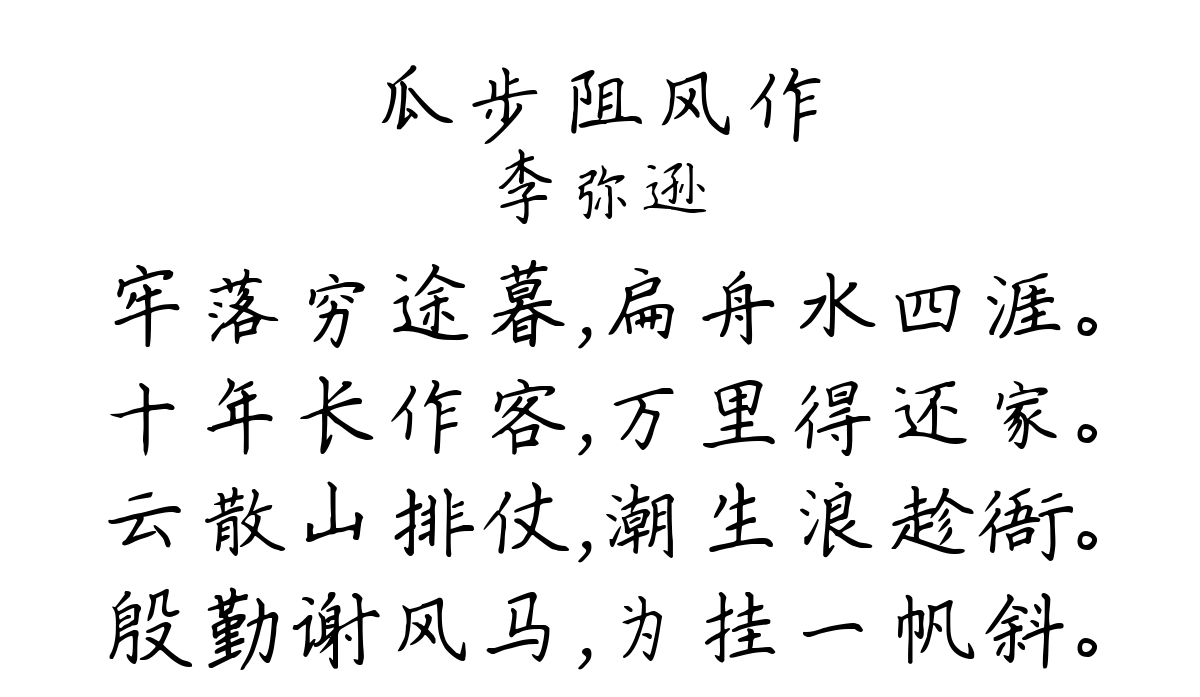 瓜步阻风作
李弥逊
牢落穷途暮,扁舟水四涯。
十年长作客,万里得还家。
云散山排仗,潮生浪趁衙。
殷勤谢风马,为挂一帆斜。